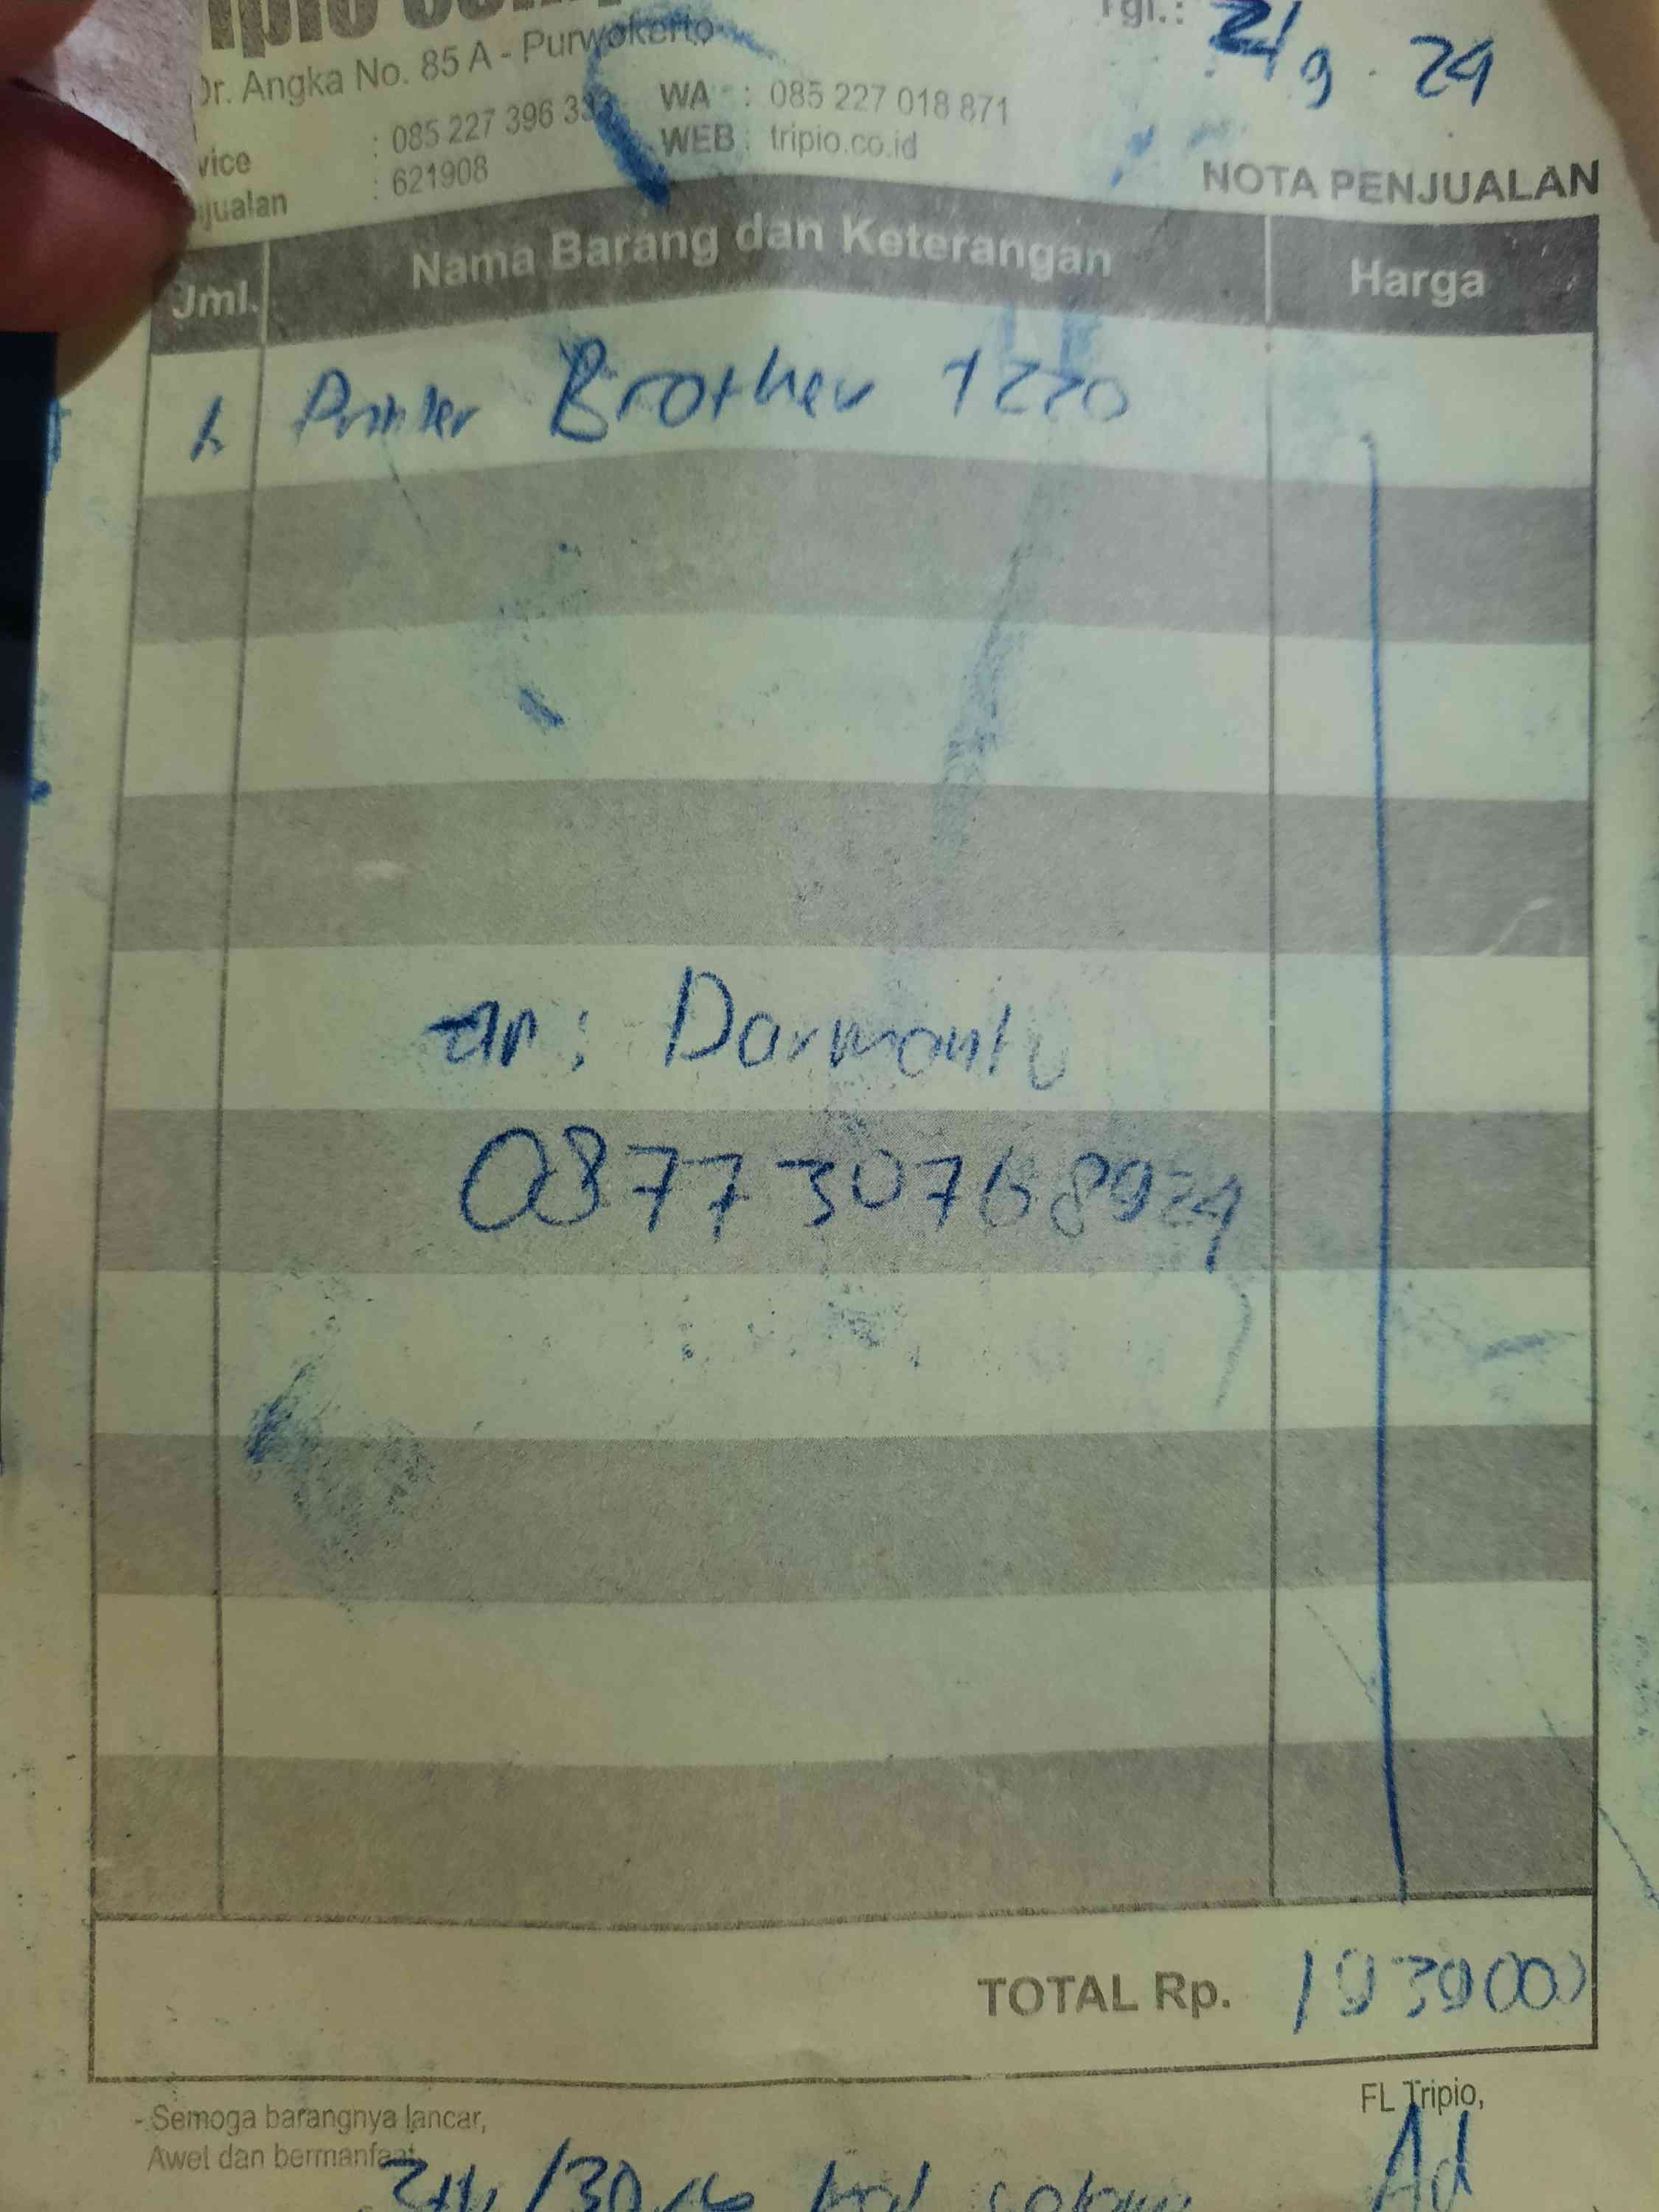 Dr. Angka No. 85 A - Purwokerto
Tgl.: 21/9 . 24
: 085 227 396 333 WA : 085 227 018 871
vice
: 621908 WEB : tripio.co.id
jualan
NOTA PENJUALAN
Jml. Nama Barang dan Keterangan Harga
1. Printer Brother T220
an : Darmanto
0877 30768924
TOTAL Rp. 1939000
- Semoga barangnya lancar,
Awet dan bermanfaat
FL Tripio,
Ad